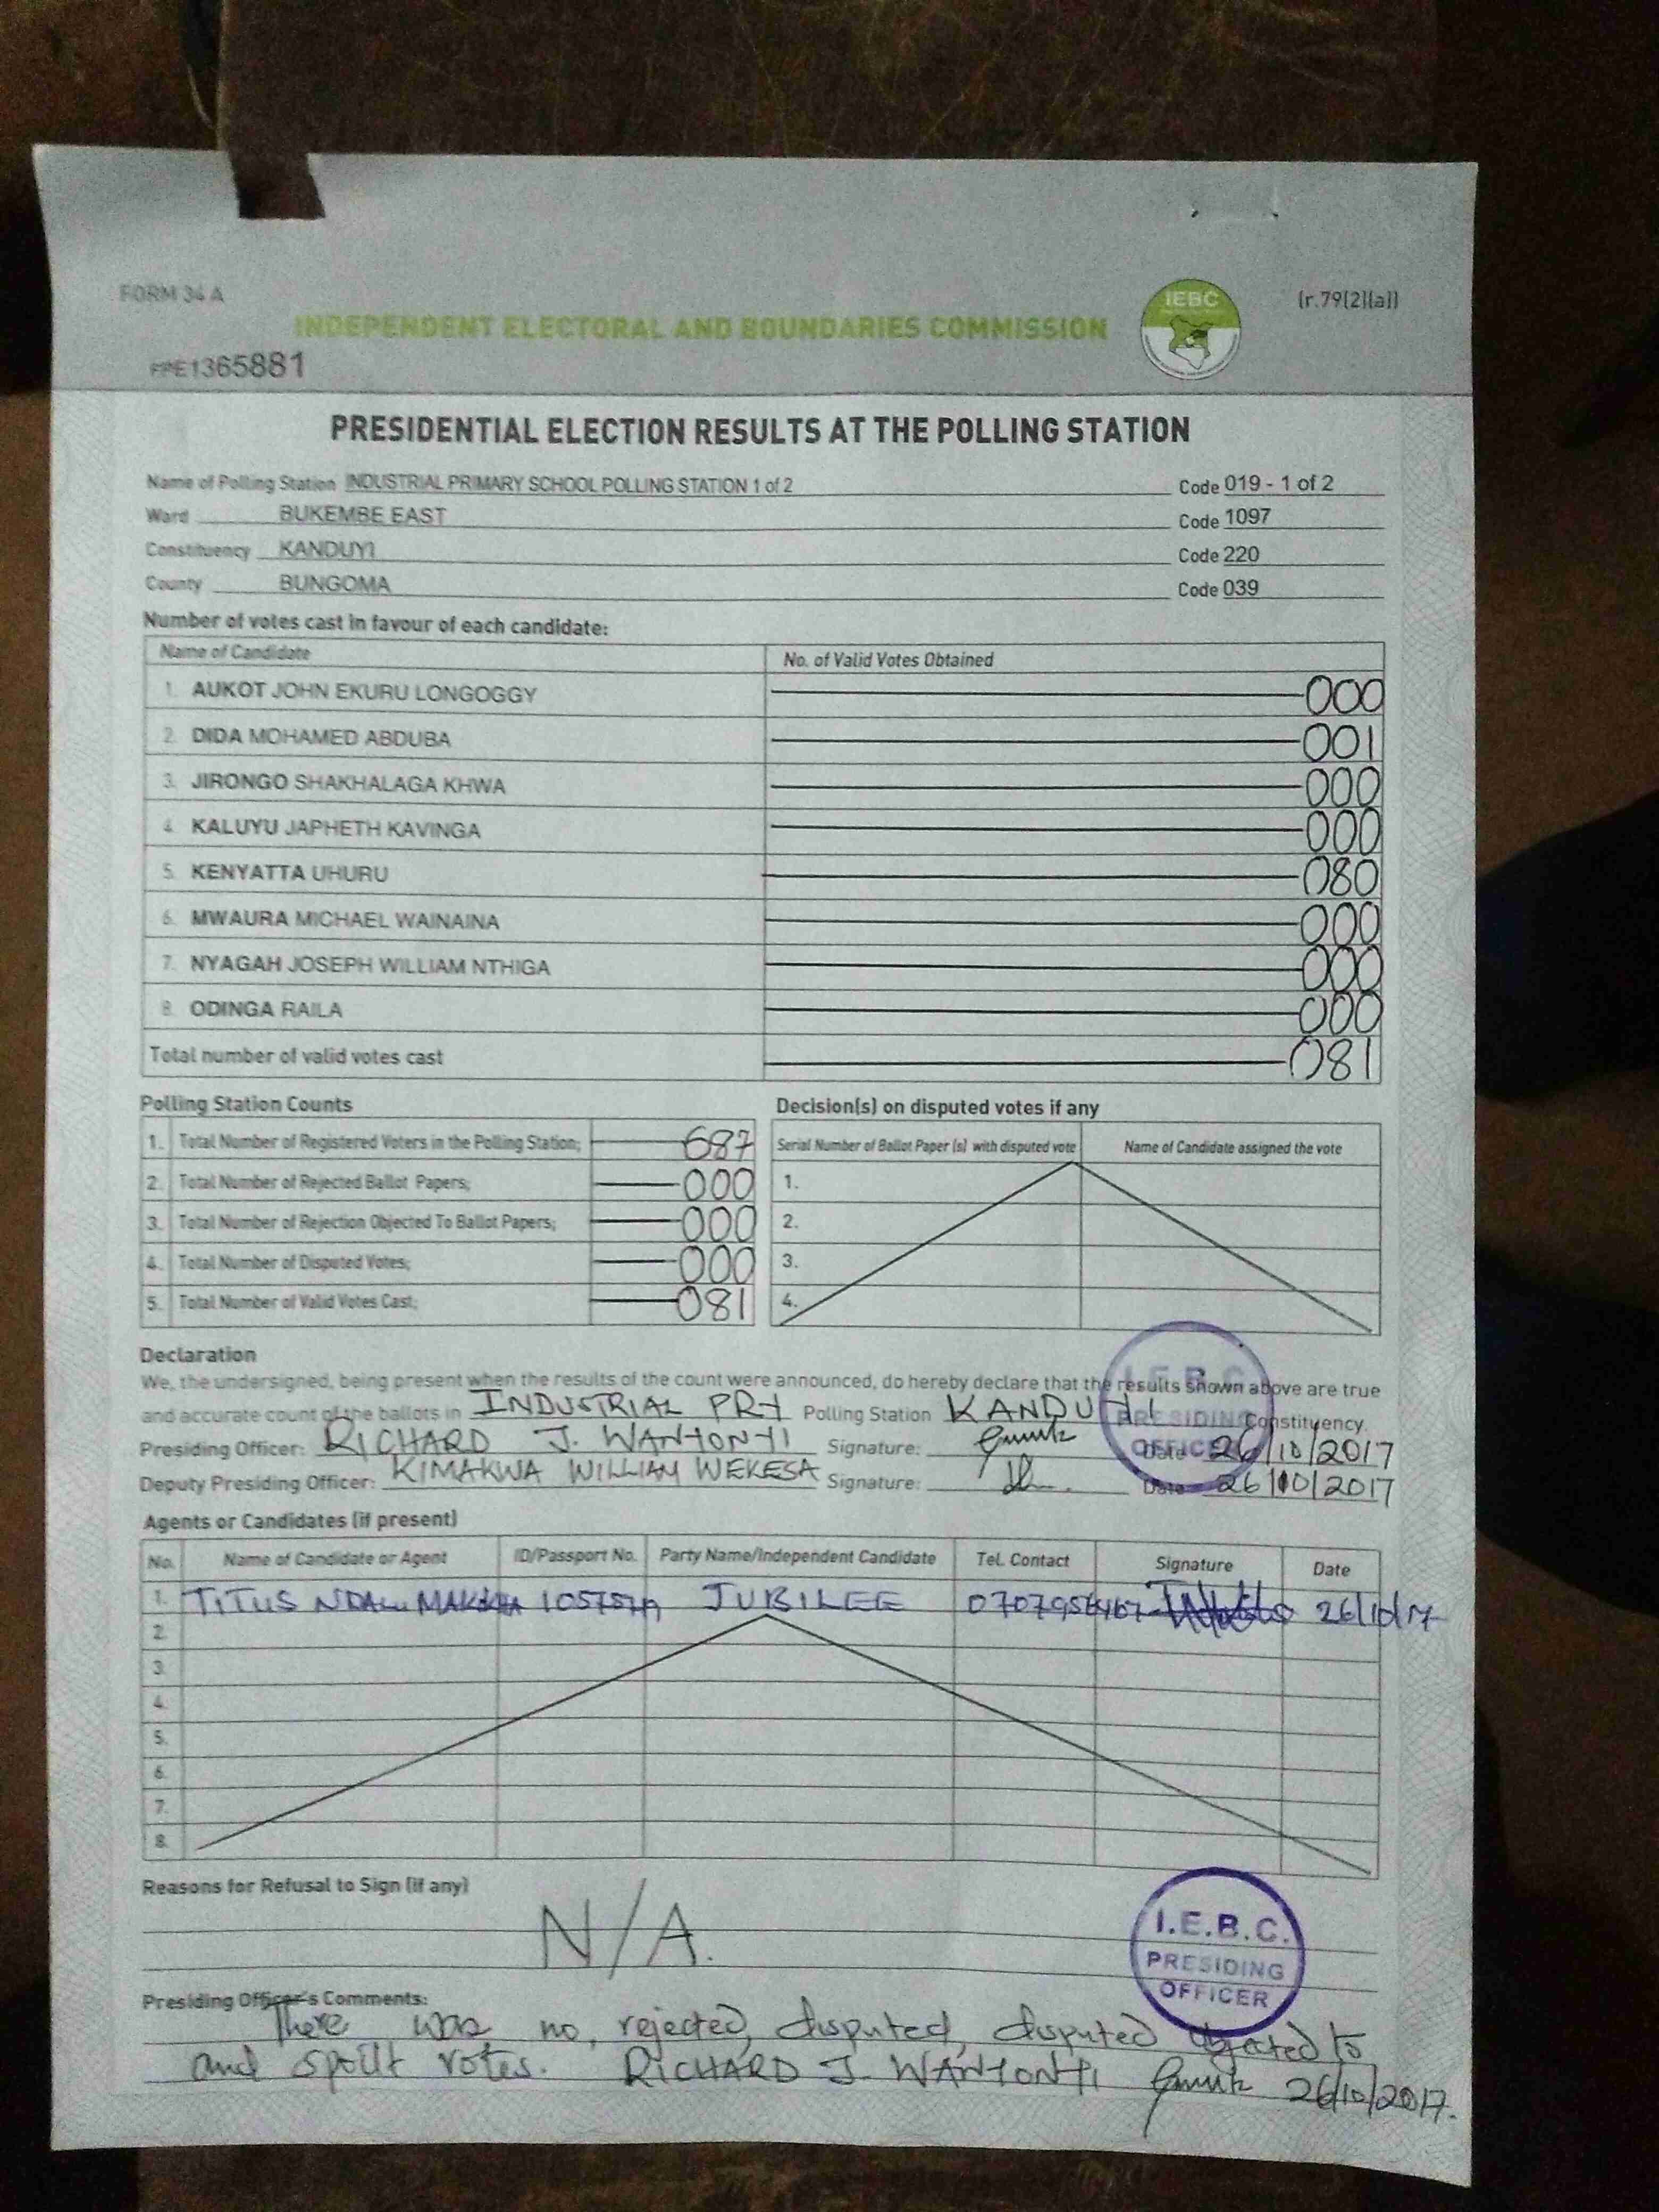 FORM 34 A
INDEPENDENT ELECTORAL AND BOUNDARIES COMMISSION
IEBC
(r.79(2)(a))
FPE1365881
PRESIDENTIAL ELECTION RESULTS AT THE POLLING STATION
Name of Polling Station INDUSTRIAL PRIMARY SCHOOL POLLING STATION 1 of 2 Code 019 - 1 of 2
Ward BUKEMBE EAST Code 1097
Constituency KANDUYI Code 220
County BUNGOMA Code 039
Number of votes cast in favour of each candidate:
Name of Candidate No. of Valid Votes Obtained
1. AUKOT JOHN EKURU LONGOGGY 000
2. DIDA MOHAMED ABDUBA 001
3. JIRONGO SHAKHALAGA KHWA 000
4. KALUYU JAPHETH KAVINGA 000
5. KENYATTA UHURU 080
6. MWAURA MICHAEL WAINAINA 000
7. NYAGAH JOSEPH WILLIAM NTHIGA 000
8. ODINGA RAILA 000
Total number of valid votes cast 081
Polling Station Counts
1. Total Number of Registered Voters in the Polling Station; 687
2. Total Number of Rejected Ballot Papers; 000
3. Total Number of Rejection Objected To Ballot Papers; 000
4. Total Number of Disputed Votes; 000
5. Total Number of Valid Votes Cast; 081
Decision(s) on disputed votes if any
Serial Number of Ballot Paper (s) with disputed vote Name of Candidate assigned the vote
1.
2.
3.
4.
Declaration
We, the undersigned, being present when the results of the count were announced, do hereby declare that the results shown above are true
and accurate count of the ballots in INDUSTRIAL PRY Polling Station KANDUYI Constituency
Presiding Officer: RICHARD J. WANYONYI Signature: Date 26/10/2017
Deputy Presiding Officer: KIMAKWA WILLIAM WEKESA Signature: Date 26/10/2017
I.E.B.C
PRESIDING
OFFICER
Agents or Candidates (if present)
No. Name of Candidate or Agent ID/Passport No. Party Name/Independent Candidate Tel. Contact Signature Date
1. TITUS JUBILEE 26/10/17
2.
3.
4.
5.
6.
7.
8.
Reasons for Refusal to Sign (if any)
N/A.
I.E.B.C.
PRESIDING
OFFICER
Presiding Officer's Comments:
There was no, rejected, disputed, disputed objected to
and spoilt votes. RICHARD J. WANYONYI 26/10/2017.